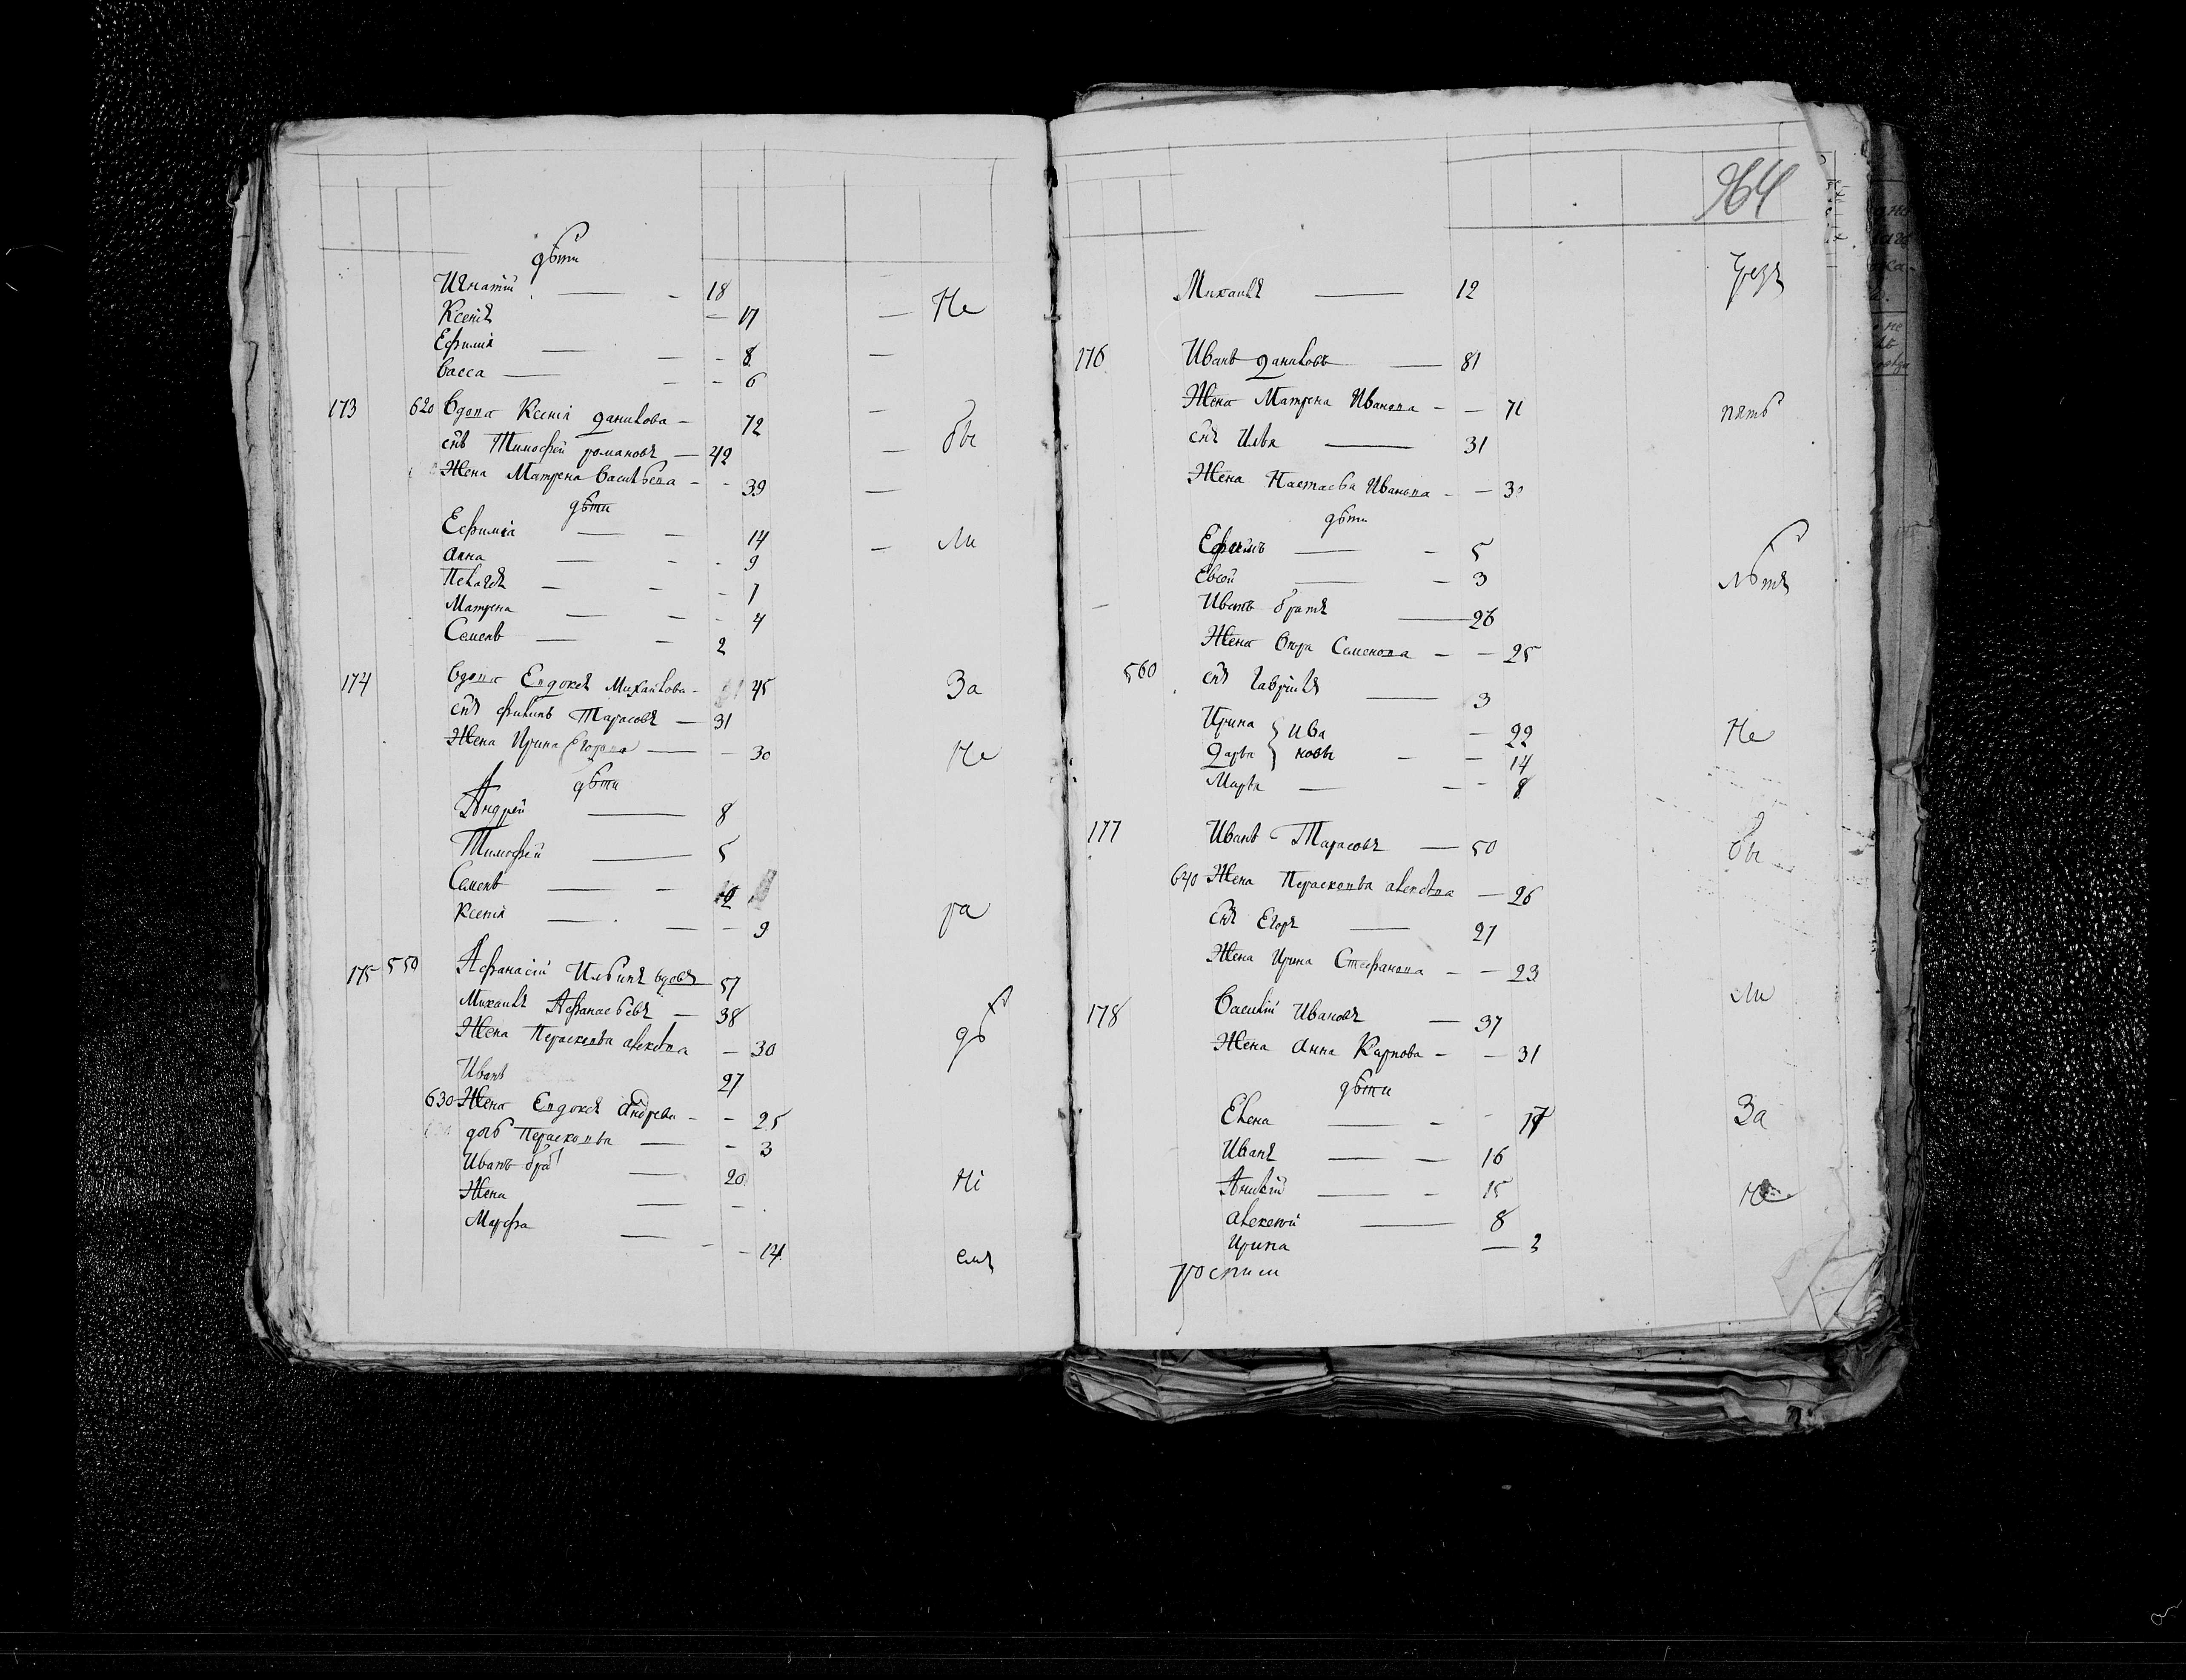 дѣти
Игнатій 18 Не
Ксенія 17
Ефимія 8
Васса 6
173 620 Вдова Ксенія Данилова 72
снъ Тимофей Романовъ 42 бы
Жена Матрена Васильева 39
дѣти
Ефимія 14 ли
Анна 9
Пелагея 7
Матрена 4
Семенъ 2
174 Вдова Евдокея Михайлова 45 За
снъ Филипъ Тарасовъ 31
Жена Ирина Егорова 30 Не
дѣти
Андрей 8
Тимофей 5
Семенъ
Ксенія 9 ра
175 550 Афанасій Ильинъ вдовъ 57
Михаилъ Афанасьевъ 38
Жена Парасковья Алексѣева 30 дѣ
Иванъ 27
630 Жена Евдокея Андреева 25
дочь Парасковья 3
Иванъ братъ 20 ні
Жена
Марфа 14 емъ
964
Михаилъ 12 Чрезъ
176 Иванъ Даниловъ 81
Жена Матрена Иванова 71 пять
снъ Илья 31
Жена Настасья Иванова
дѣти
Ефимъ 5
Евсей 3 лѣтъ
Иванъ братъ 26
Жена Вера Семенова 25
560 снъ Гаврилъ 3
Ирина } Ива 22 Не
Дарья } новы 14
Марья 8
177 Иванъ Тарасовъ 50 бы
640 Жена Парасковья Алексѣева 26
снъ Егоръ 27
Жена Ирина Стефанова 23
178 Василій Ивановъ 37 ли
Жена Анна Карпова 31
дѣти
Елена 17 За
Иванъ 16
15 Не
Алексей 8
Ирина 3
росписи